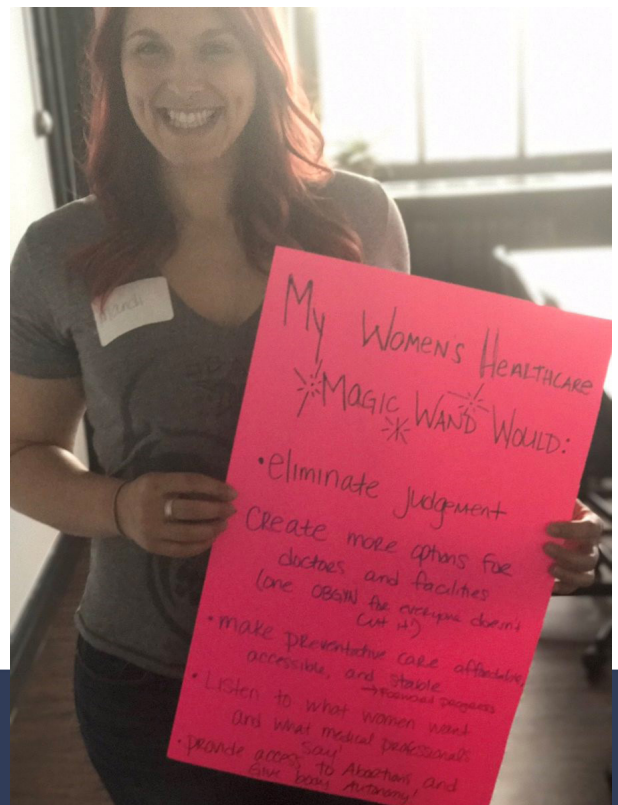 Mandi
My Women's Healthcare
Magic Wand Would:
• eliminate judgement
Create more options for
doctors and facilities
(one OBGYN for everyone doesn't
cut it!)
• make preventative care affordable,
accessible, and stable
→ Forward progress
• Listen to what women want
and what medical professionals
say!
• provide access to Abortions and
Give body Autonomy!